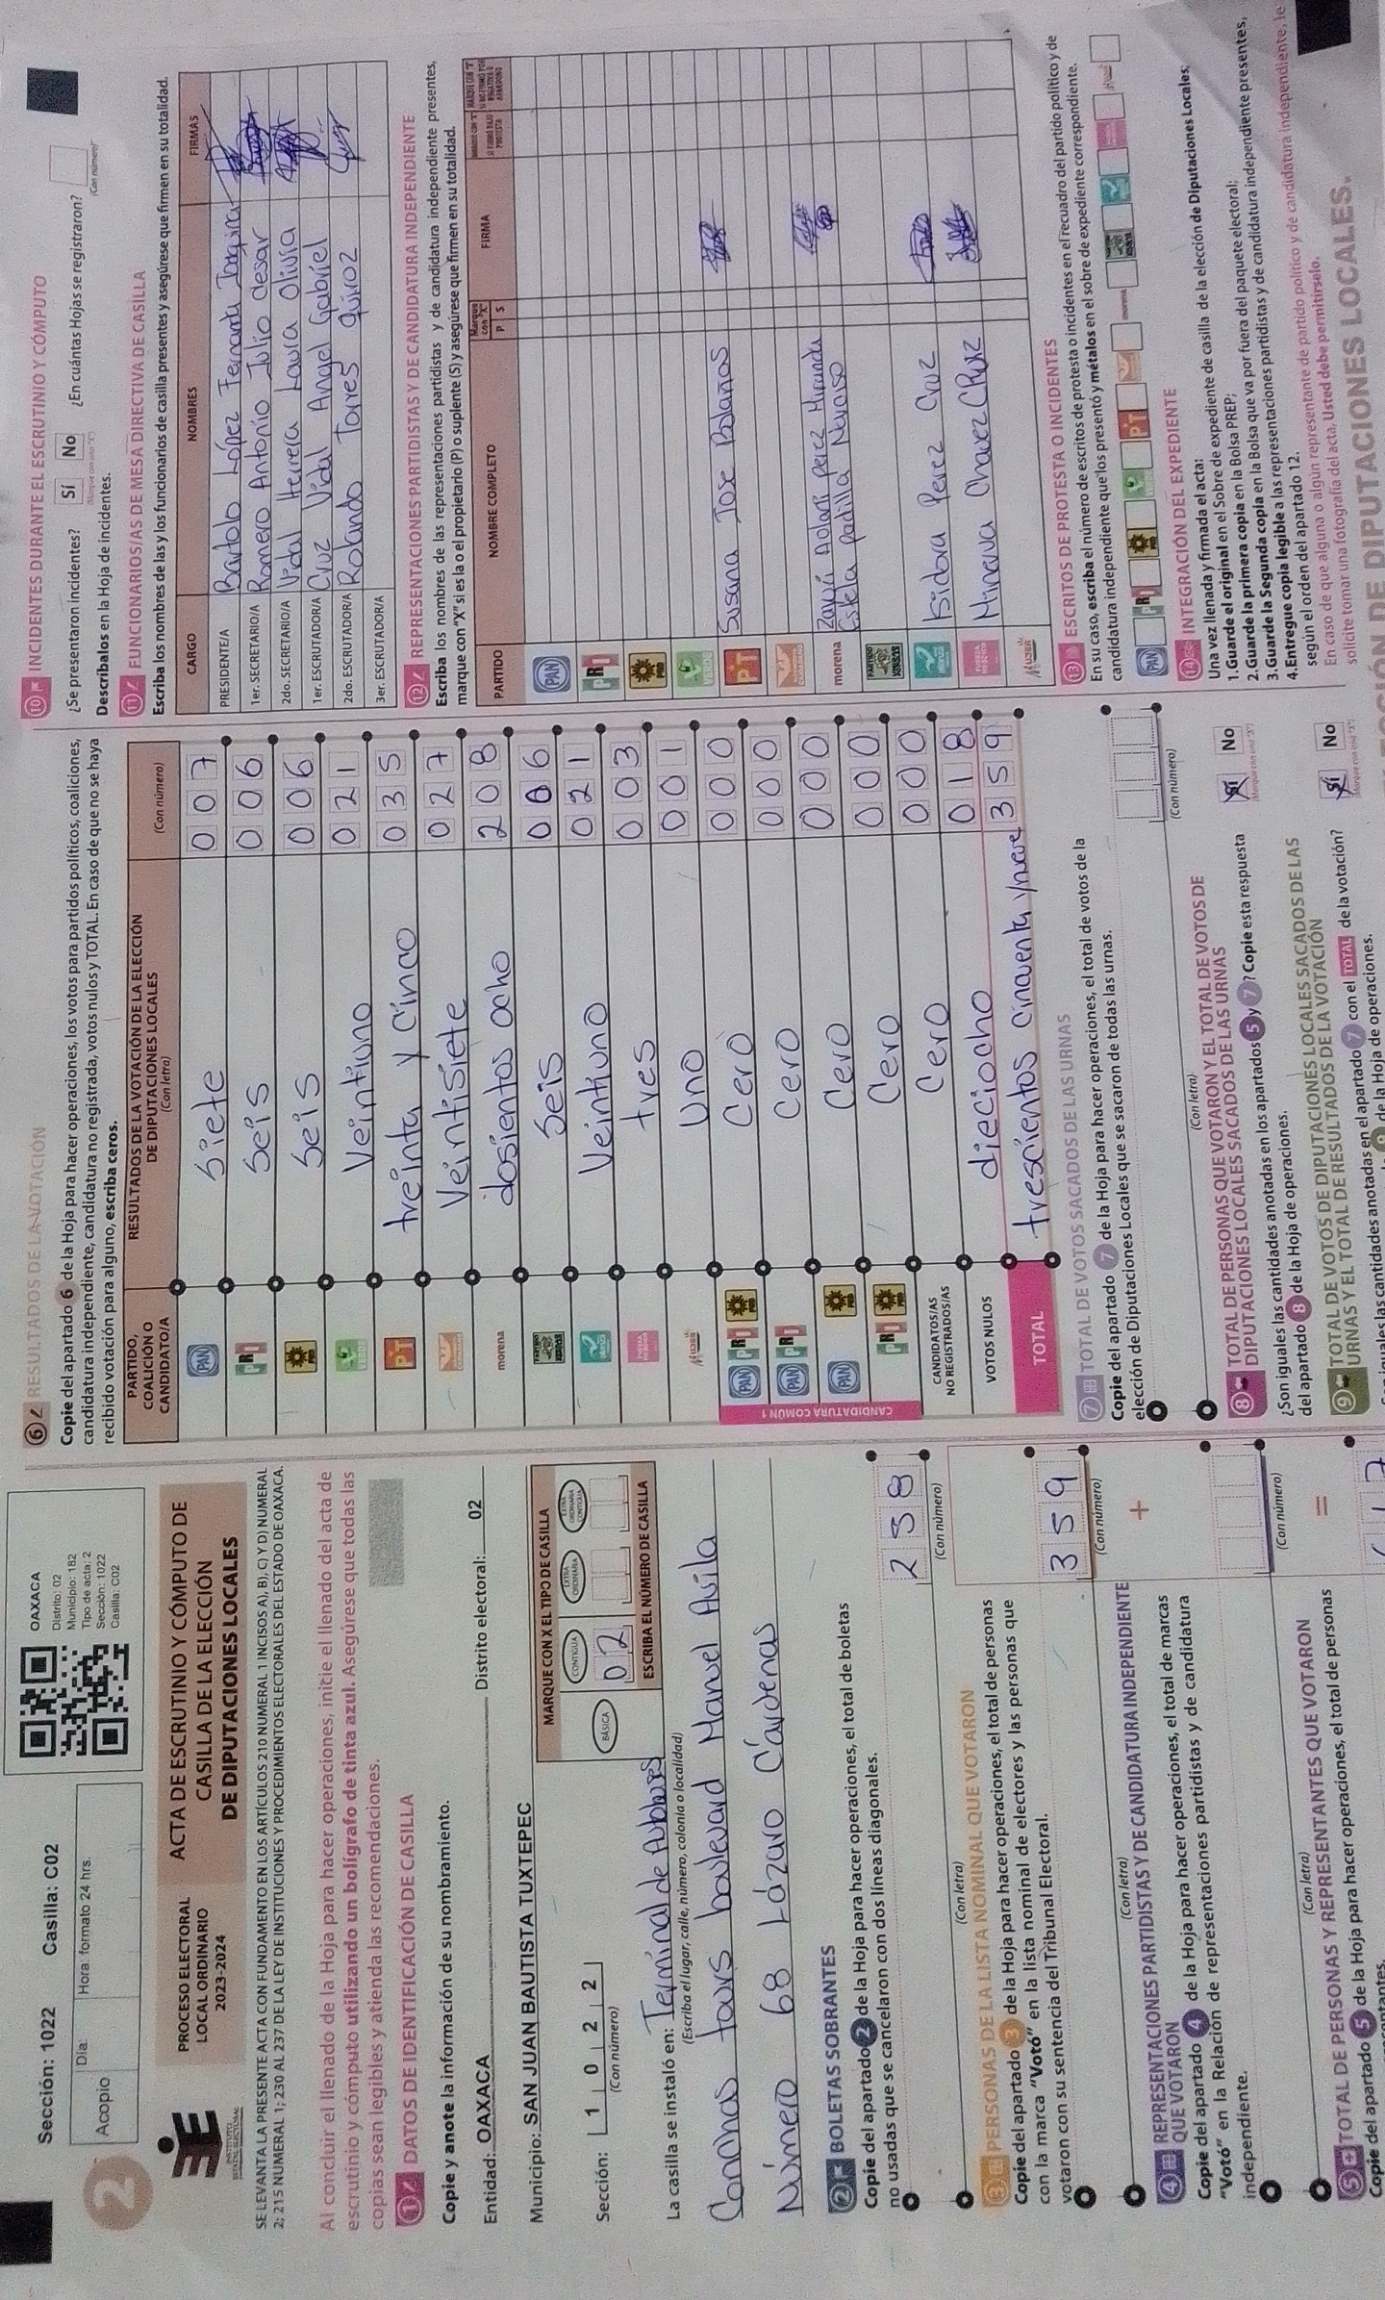 Sección: 1022 Casilla: C02
2
Acopio
Día:
Hora: formato 24 hrs.
OAXACA
Distrito: 02
Municipio: 182
Tipo de acta: 2
Sección: 1022
Casilla: C02
PROCESO ELECTORAL
LOCAL ORDINARIO
2023-2024
ACTA DE ESCRUTINIO Y CÓMPUTO DE
CASILLA DE LA ELECCIÓN
DE DIPUTACIONES LOCALES
SE LEVANTA LA PRESENTE ACTA CON FUNDAMENTO EN LOS ARTÍCULOS 210 NUMERAL 1 INCISOS A), B), C) Y D) NUMERAL
2; 215 NUMERAL 1; 230 AL 237 DE LA LEY DE INSTITUCIONES Y PROCEDIMIENTOS ELECTORALES DEL ESTADO DE OAXACA.
Al concluir el llenado de la Hoja para hacer operaciones, inicie el llenado del acta de
escrutinio y cómputo utilizando un bolígrafo de tinta azul. Asegúrese que todas las
copias sean legibles y atienda las recomendaciones.
1 DATOS DE IDENTIFICACIÓN DE CASILLA
Copie y anote la información de su nombramiento.
Entidad: OAXACA Distrito electoral: 02
Municipio: SAN JUAN BAUTISTA TUXTEPEC
Sección: 1 0 2 2
(Con número)
MARQUE CON X EL TIPO DE CASILLA
BÁSICA
CONTIGUA
02
ESCRIBA EL NÚMERO DE CASILLA
La casilla se instaló en: Terminal de Autobuses
(Escriba el lugar, calle, número, colonia o localidad)
Conchas tours boulevard Manuel Avila
Número 68 Lázaro Cárdenas
2 BOLETAS SOBRANTES
Copie del apartado 2 de la Hoja para hacer operaciones, el total de boletas
no usadas que se cancelaron con dos líneas diagonales.
258
(Con letra) (Con número)
3 PERSONAS DE LA LISTA NOMINAL QUE VOTARON
Copie del apartado 3 de la Hoja para hacer operaciones, el total de personas
con la marca "Votó" en la lista nominal de electores y las personas que
votaron con su sentencia del Tribunal Electoral.
359
(Con letra) (Con número)
+
4 REPRESENTACIONES PARTIDISTAS Y DE CANDIDATURA INDEPENDIENTE
QUE VOTARON
Copie del apartado 4 de la Hoja para hacer operaciones, el total de marcas
"Votó" en la Relación de representaciones partidistas y de candidatura
independiente.
(Con letra) (Con número)
=
5 TOTAL DE PERSONAS Y REPRESENTANTES QUE VOTARON
Copie del apartado 5 de la Hoja para hacer operaciones, el total de personas
6 RESULTADOS DE LA VOTACIÓN
Copie del apartado 6 de la Hoja para hacer operaciones, los votos para partidos políticos, coaliciones,
candidatura independiente, candidatura no registrada, votos nulos y TOTAL. En caso de que no se haya
recibido votación para alguno, escriba ceros.
PARTIDO,
COALICIÓN O
CANDIDATO/A
RESULTADOS DE LA VOTACIÓN DE LA ELECCIÓN
DE DIPUTACIONES LOCALES
(Con letra) (Con número)
PAN siete 007
PRI seis 006
PRD seis 006
VERDE Veintiuno 021
PT treinta y cinco 035
Veintisiete 027
morena dosientos ocho 208
seis 006
Veintiuno 021
tres 003
MUJER Uno 001
CANDIDATURA COMÚN 1
PAN PRI PRD Cero 000
PAN PRI Cero 000
PAN PRD Cero 000
PRI PRD Cero 000
CANDIDATOS/AS
NO REGISTRADOS/AS Cero 000
VOTOS NULOS dieciocho 018
TOTAL trescientos cincuenta y nueve 359
7 TOTAL DE VOTOS SACADOS DE LAS URNAS
Copie del apartado 7 de la Hoja para hacer operaciones, el total de votos de la
elección de Diputaciones Locales que se sacaron de todas las urnas.
(Con letra) (Con número)
8 TOTAL DE PERSONAS QUE VOTARON Y EL TOTAL DE VOTOS DE
DIPUTACIONES LOCALES SACADOS DE LAS URNAS
¿Son iguales las cantidades anotadas en los apartados 5 y 7? Copie esta respuesta
del apartado 8 de la Hoja de operaciones.
Sí No
9 TOTAL DE VOTOS DE DIPUTACIONES LOCALES SACADOS DE LAS
URNAS Y EL TOTAL DE RESULTADOS DE LA VOTACIÓN
Son iguales las cantidades anotadas en el apartado 7 con el TOTAL de la votación?
de la Hoja de operaciones.
Sí No
10 INCIDENTES DURANTE EL ESCRUTINIO Y CÓMPUTO
¿Se presentaron incidentes? Sí No ¿En cuántas Hojas se registraron?
(Con número)
Descríbalos en la Hoja de incidentes.
11 FUNCIONARIOS/AS DE MESA DIRECTIVA DE CASILLA
Escriba los nombres de las y los funcionarios de casilla presentes y asegúrese que firmen en su totalidad.
CARGO NOMBRES FIRMAS
PRESIDENTE/A Bartolo López Fernanda Joaquina
1er. SECRETARIO/A Romero Antonio Julio desar
2do. SECRETARIO/A Vidal Herrera Laura Olivia
1er. ESCRUTADOR/A Cruz Vidal Angel Gabriel
2do. ESCRUTADOR/A Rolando Torres Quiroz
3er. ESCRUTADOR/A
12 REPRESENTACIONES PARTIDISTAS Y DE CANDIDATURA INDEPENDIENTE
Escriba los nombres de las representaciones partidistas y de candidatura independiente presentes,
marque con "X" si es la o el propietario (P) o suplente (S) y asegúrese que firmen en su totalidad.
PARTIDO NOMBRE COMPLETO Marque con "X" P S FIRMA
PAN
PRI
PRD
VERDE
PT Susana Jose Bolaños
morena Zayri Adlani perez Miranda
Estela padilla Narciso
Isidora Perez Cruz
Minerva Chavez CRuz
MUJER
13 ESCRITOS DE PROTESTA O INCIDENTES
En su caso, escriba el número de escritos de protesta o incidentes en el recuadro del partido político y de
candidatura independiente que los presentó y métalos en el sobre de expediente correspondiente.
PAN PRI PRD PT morena
14 INTEGRACIÓN DEL EXPEDIENTE
Una vez llenada y firmada el acta:
1. Guarde el original en el Sobre de expediente de casilla de la elección de Diputaciones Locales;
2. Guarde la primera copia en la Bolsa PREP;
3. Guarde la Segunda copia en la Bolsa que va por fuera del paquete electoral;
4. Entregue copia legible a las representaciones partidistas y de candidatura independiente presentes,
según el orden del apartado 12.
En caso de que alguna o algún representante de partido político y de candidatura independiente, le
solicite tomar una fotografía del acta, Usted debe permitírselo.
DE DIPUTACIONES LOCALES.